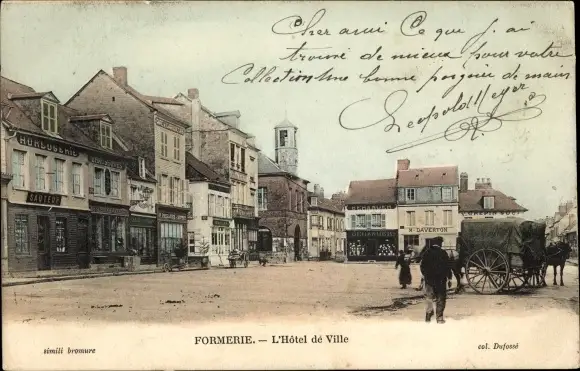 Cher ami Ce que j'ai
trouvé de mieux pour votre
Collection Une bonne poignée de main
Leopold Meyer
HORLOGERIE
DAUTEUX
M. DAVERTON
FORMERIE. — L'Hôtel dé Ville
simili bromure
col. Dufossé